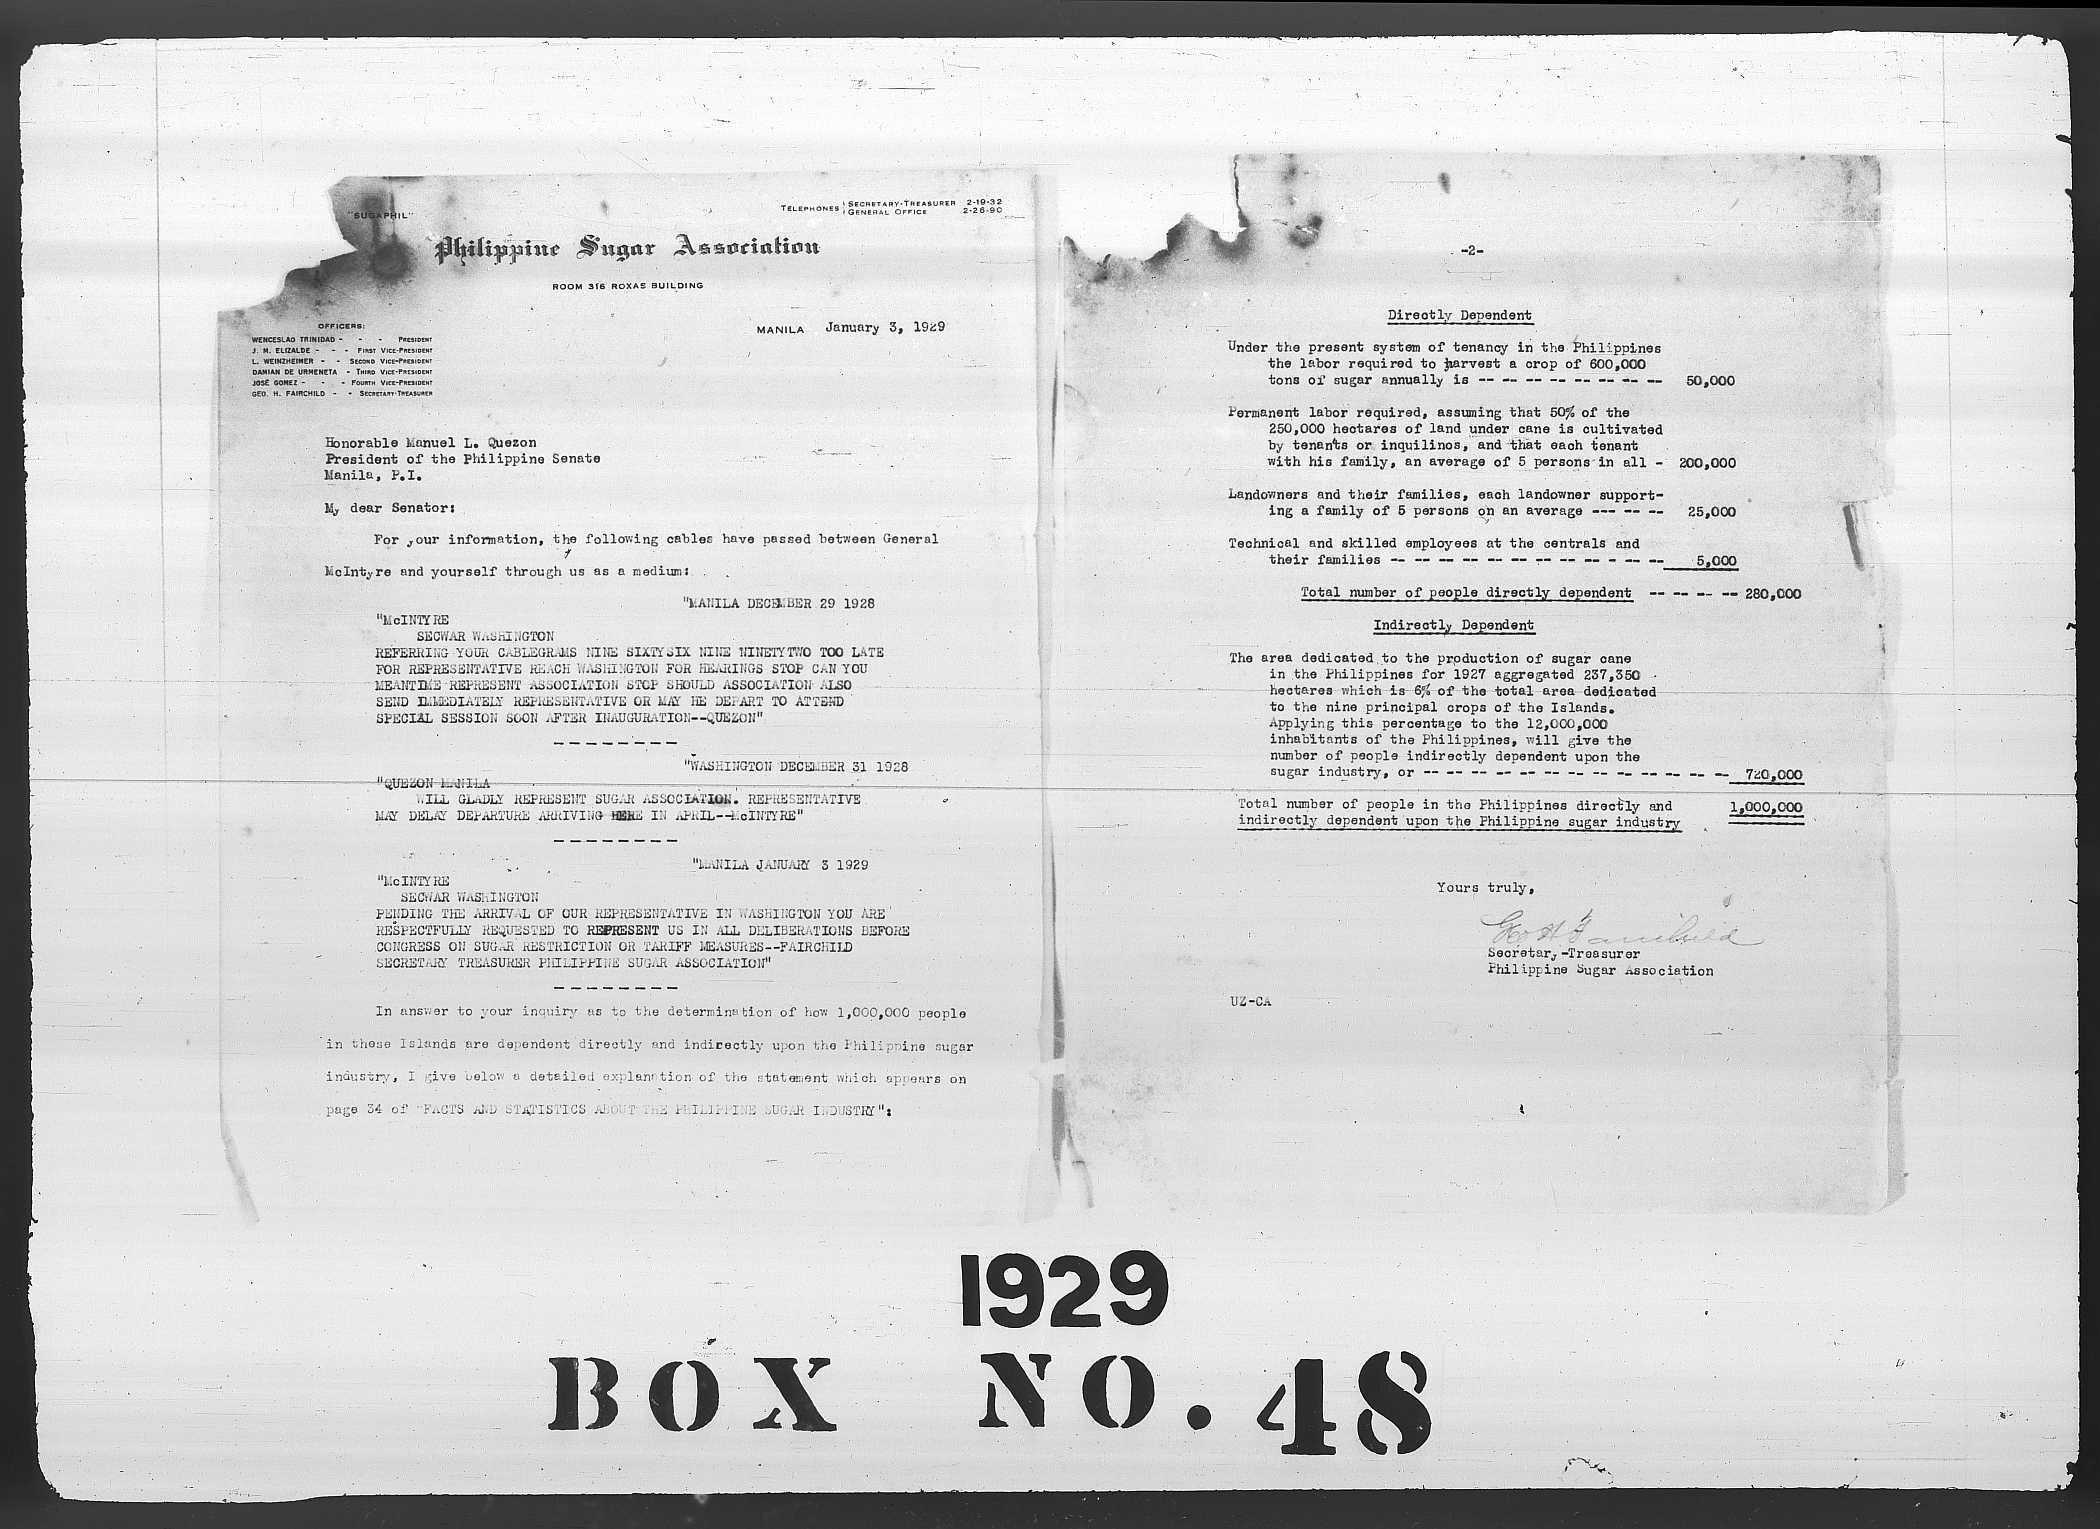 "SUGAPHIL"
TELEPHONES SECRETARY-TREASURER 2-19-32
GENERAL OFFICE 2-26-90
Philippine Sugar Association
ROOM 316 ROXAS BUILDING
MANILA January 3, 1929
OFFICERS:
WENCESLAO TRINIDAD - - - PRESIDENT
J. M. ELIZALDE - - - FIRST VICE-PRESIDENT
L. WEINZHEIMER - - SECOND VICE-PRESIDENT
DAMIAN DE URMENETA - THIRD VICE-PRESIDENT
JOSÉ GOMEZ - - - FOURTH VICE-PRESIDENT
GEO. H. FAIRCHILD - - SECRETARY-TREASURER
Honorable Manuel L. Quezon
President of the Philippine Senate
Manila, P.I.
My dear Senator:
For your information, the following cables have passed between General
McIntyre and yourself through us as a medium:
"MANILA DECEMBER 29 1928
"McINTYRE
SECWAR WASHINGTON
REFERRING YOUR CABLEGRAMS NINE SIXTYSIX NINE NINETYTWO TOO LATE
FOR REPRESENTATIVE REACH WASHINGTON FOR HEARINGS STOP CAN YOU
MEANTIME REPRESENT ASSOCIATION STOP SHOULD ASSOCIATION ALSO
SEND IMMEDIATELY REPRESENTATIVE OR MAY HE DEPART TO ATTEND
SPECIAL SESSION SOON AFTER INAUGURATION--QUEZON"
--------
"WASHINGTON DECEMBER 31 1928
"QUEZON MANILA
WILL GLADLY REPRESENT SUGAR ASSOCIATION. REPRESENTATIVE
MAY DELAY DEPARTURE ARRIVING HERE IN APRIL--McINTYRE"
--------
"MANILA JANUARY 3 1929
"McINTYRE
SECWAR WASHINGTON
PENDING THE ARRIVAL OF OUR REPRESENTATIVE IN WASHINGTON YOU ARE
RESPECTFULLY REQUESTED TO REPRESENT US IN ALL DELIBERATIONS BEFORE
CONGRESS ON SUGAR RESTRICTION OR TARIFF MEASURES--FAIRCHILD
SECRETARY TREASURER PHILIPPINE SUGAR ASSOCIATION"
--------
In answer to your inquiry as to the determination of how 1,000,000 people
in these Islands are dependent directly and indirectly upon the Philippine sugar
industry, I give below a detailed explanation of the statement which appears on
page 34 of "FACTS AND STATISTICS ABOUT THE PHILIPPINE SUGAR INDUSTRY":
-2-
Directly Dependent
Under the present system of tenancy in the Philippines
the labor required to harvest a crop of 600,000
tons of sugar annually is -- -- -- -- -- -- -- -- 50,000
Permanent labor required, assuming that 50% of the
250,000 hectares of land under cane is cultivated
by tenants or inquilinos, and that each tenant
with his family, an average of 5 persons in all - 200,000
Landowners and their families, each landowner support-
ing a family of 5 persons on an average --- -- -- 25,000
Technical and skilled employees at the centrals and
their families -- -- -- -- -- -- -- -- -- -- -- -- 5,000
Total number of people directly dependent -- -- -- -- 280,000
Indirectly Dependent
The area dedicated to the production of sugar cane
in the Philippines for 1927 aggregated 237,350
hectares which is 6% of the total area dedicated
to the nine principal crops of the Islands.
Applying this percentage to the 12,000,000
inhabitants of the Philippines, will give the
number of people indirectly dependent upon the
sugar industry, or -- -- -- -- -- -- -- -- -- -- -- -- -- 720,000
Total number of people in the Philippines directly and 1,000,000
indirectly dependent upon the Philippine sugar industry
Yours truly,
Geo H Fairchild
Secretary-Treasurer
Philippine Sugar Association
UZ-CA
1929
BOX NO. 48